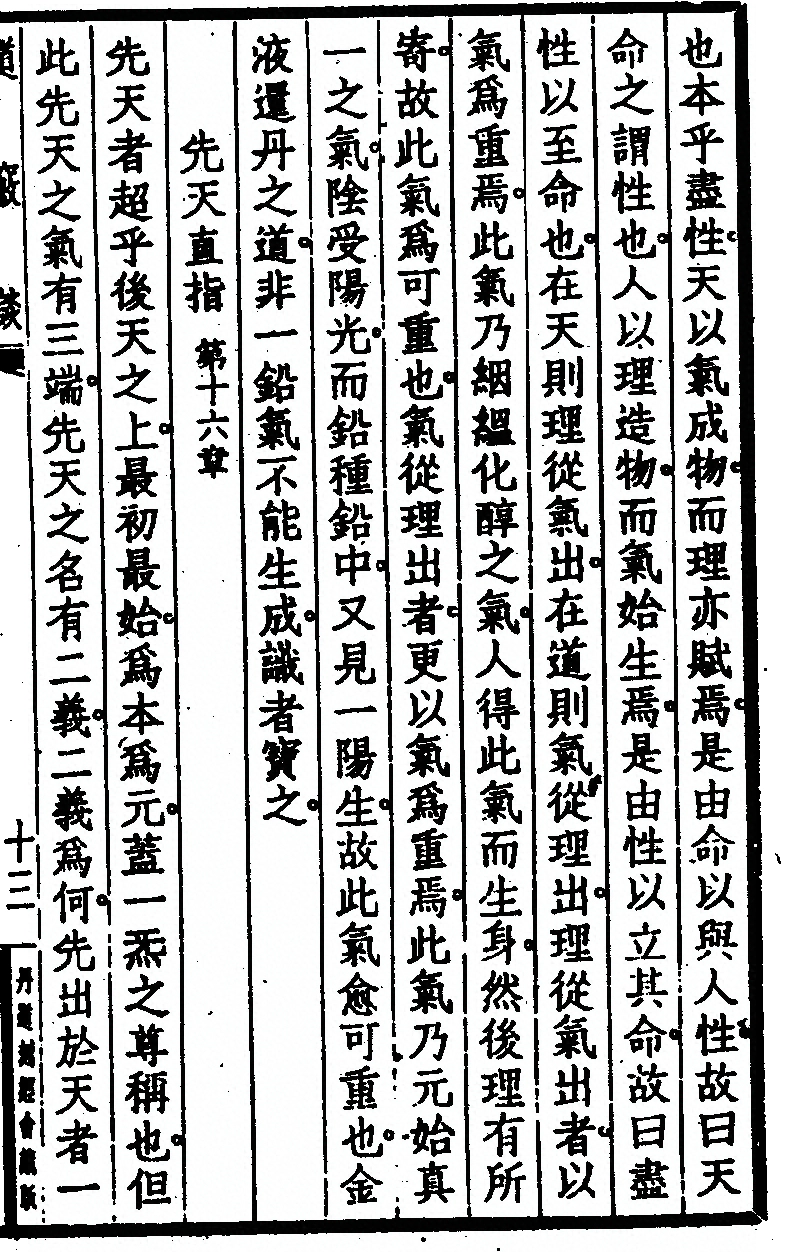 也本乎盡性。天以氣成物。而理亦賦焉。是由命以與人性。故曰天
命之謂性也。人以理造物。而氣始生焉。是由性以立其命。故曰盡
性以至命也。在天則理從氣出。在道則氣從理出。理從氣出者。以
氣爲重焉。此氣乃絪縕化醇之氣。人得此氣而生身。然後理有所
寄。故此氣爲可重也。氣從理出者。更以氣爲重焉。此氣乃元始真
一之氣。陰受陽光。而鉛種鉛中。又見一陽生。故此氣愈可重也。金
液還丹之道。非一鉛氣不能生成。識者寶之。
先天直指 第十六章
先天者超乎後天之上。最初最始。爲本爲元。蓋一炁之尊稱也。但
此先天之氣有三端。先天之名有二義。二義爲何。先出於天者一
道竅談
十三
丹道刻經會藏版